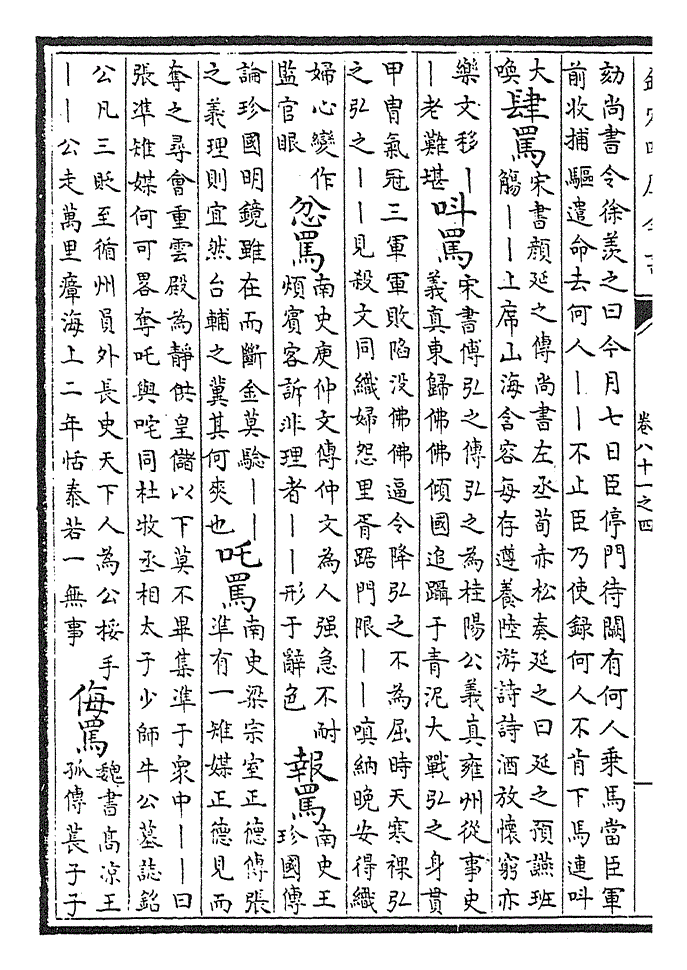 卷八十一之四
劾尚書令徐羨之曰今月七日臣停門待闕有何人乗馬當臣軍
前收捕驅遣命去何人丨丨不止臣乃使録何人不肯下馬連呌
大
喚
肆罵
宋書顔延之傳尚書左丞荀赤松奏延之曰延之預讌班
觴丨丨上席山海含容每存遵養陸游詩詩酒放懷窮亦
樂文移丨
丨老難堪
呌罵
宋書傅弘之傳弘之為桂陽公義真雍州從事史
義真東歸佛佛傾國追躡于青泥大戰弘之身貫
甲冑氣冠三軍軍敗陷没佛佛逼令降弘之不為屈時天寒裸弘
之弘之丨丨見殺文同織婦怨里胥踞門限丨丨嗔納晚安得織
婦心變作
監官眼
忿罵
南史庾仲文傳仲文為人强急不耐
煩賓客訴非理者丨丨形于辭色
報罵
南史王
珍國傳
論珍國明鏡雖在而斷金莫驗丨丨
之義理則宜然台輔之冀其何爽也
吒罵
南史梁宗室正德傳張
準有一雉媒正德見而
奪之尋會重雲殿為靜供皇儲以下莫不畢集準于衆中丨丨曰
張準雉媒何可畧奪吒與咤同杜牧丞相太子少師牛公墓誌銘
公凡三貶至循州員外長史天下人為公捘手
丨丨公走萬里瘴海上二年恬泰若一無事
侮罵
魏書髙凉王
孤傳萇子子